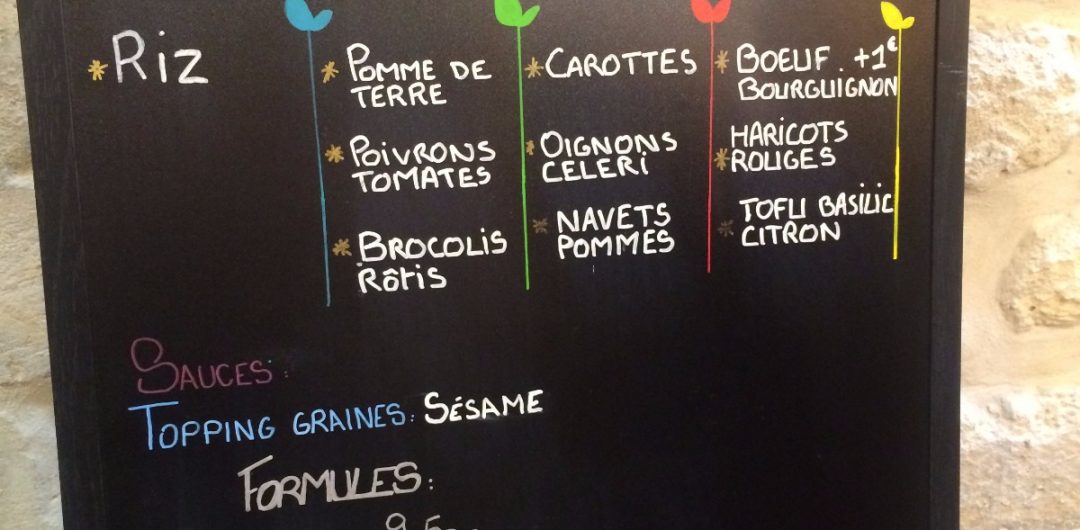 * Riz
* POMME DE
TERRE
* POIVRONS
TOMATES
* BROCOLIS
RÔTIS
* CAROTTES
* OIGNONS
CELERI
* NAVETS
POMMES
* BOEUF. +1€
BOURGUIGNON
HARICOTS
* ROUGES
* TOFU BASILIC
CITRON
SAUCES:
TOPPING GRAINES: SÉSAME
FORMULES: